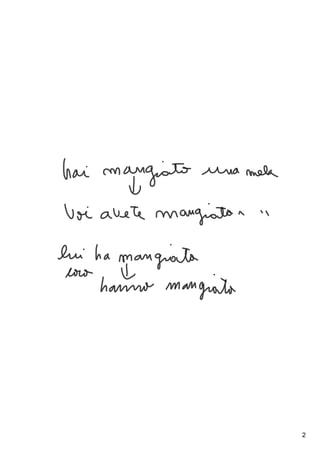 hai mangiato una mela
↓
Voi avete mangiato " "
lui ha mangiato
loro ↓
hanno mangiato
2